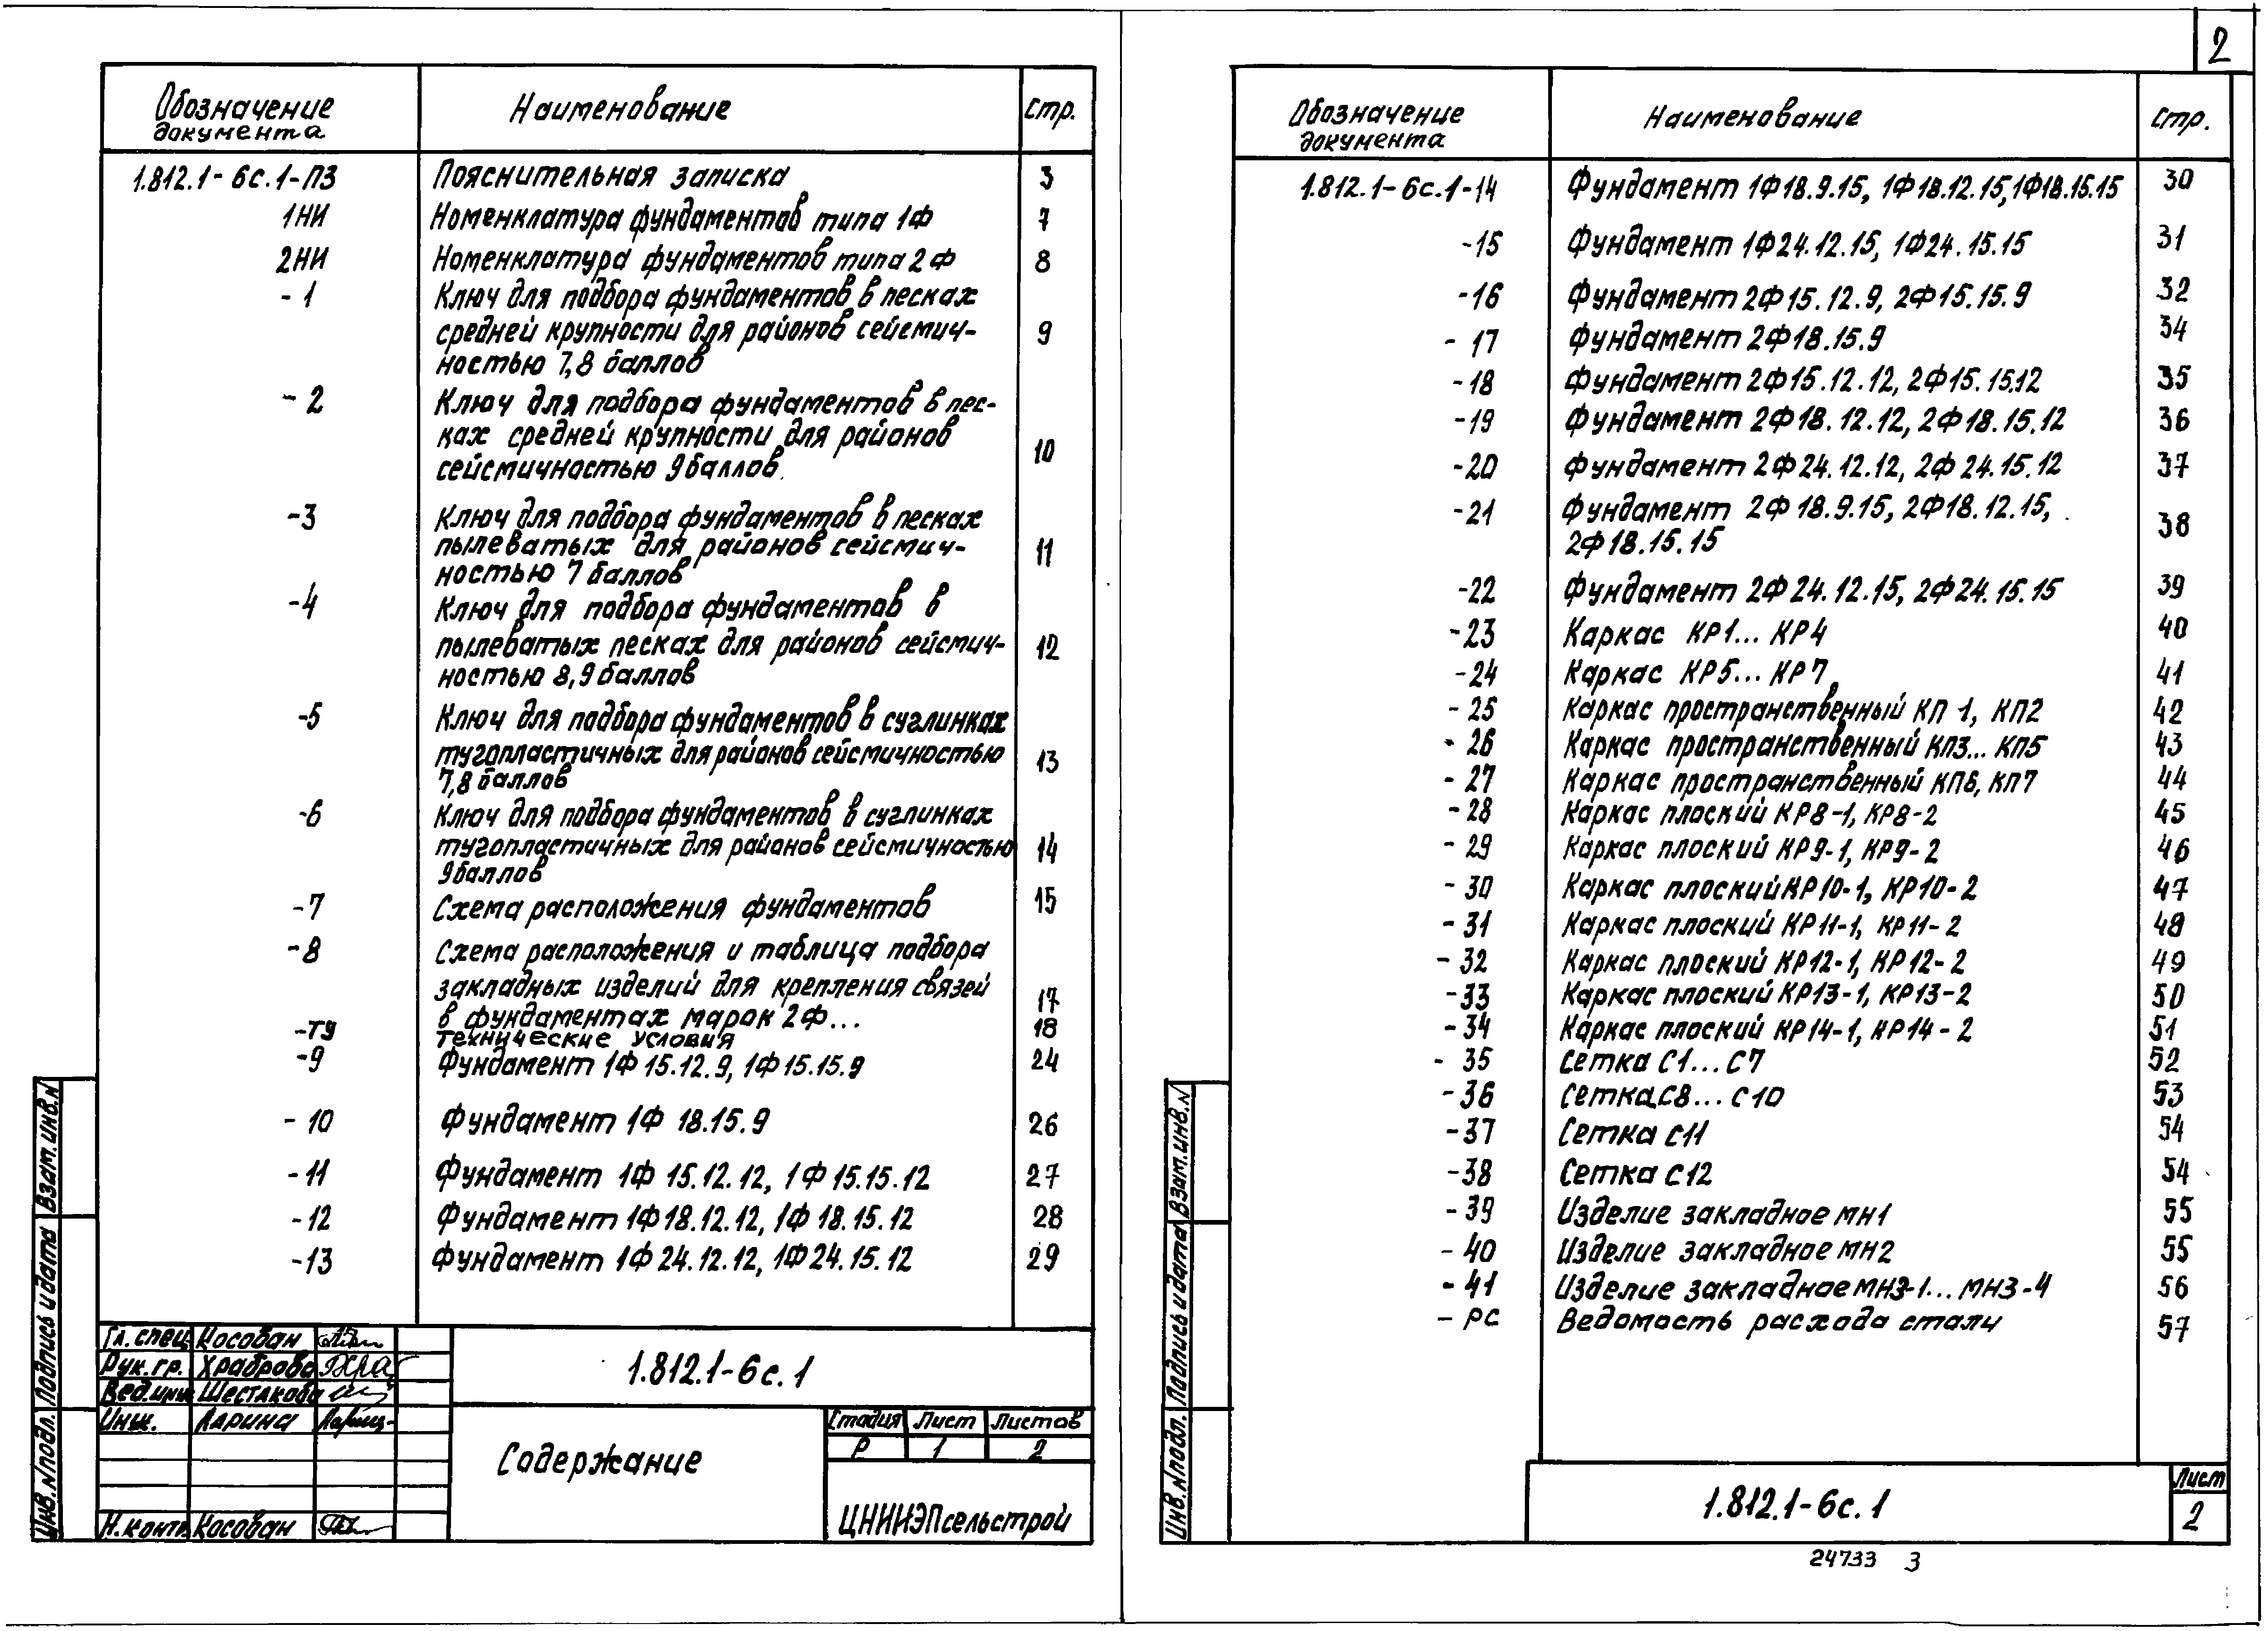 2
Обозначение документа Наименование стр.
1.812.1-6с.1-ПЗ Пояснительная записка 3
1НИ Номенклатура фундаментов типа 1Ф 7
2НИ Номенклатура фундаментов типа 2Ф 8
-1 Ключ для подбора фундаментов в песках
средней крупности для районов сейсмич- 9
ностью 7,8 баллов
-2 Ключ для подбора фундаментов в пес-
ках средней крупности для районов 10
сейсмичностью 9 баллов
-3 Ключ для подбора фундаментов в песках
пылеватых для районов сейсмич- 11
ностью 7 баллов
-4 Ключ для подбора фундаментов в
пылеватых песках для районов сейсмич- 12
ностью 8,9 баллов
-5 Ключ для подбора фундаментов в суглинках
тугопластичных для районов сейсмичностью 13
7,8 баллов
-6 Ключ для подбора фундаментов в суглинках
тугопластичных для районов сейсмичностью 14
9 баллов
-7 Схема расположения фундаментов 15
-8 Схема расположения и таблица подбора
закладных изделий для крепления связей 17
в фундаментах марок 2Ф...
-ТУ Технические условия 18
-9 Фундамент 1Ф 15.12.9, 1Ф 15.15.9 24
-10 Фундамент 1Ф 18.15.9 26
-11 Фундамент 1Ф 15.12.12, 1Ф 15.15.12 27
-12 Фундамент 1Ф 18.12.12, 1Ф 18.15.12 28
-13 Фундамент 1Ф 24.12.12, 1Ф 24.15.12 29
Гл. спец. Косован
Рук. гр. Храброва
Вед. инж. Шестакова
Инж. Ларина
Н. контр. Косован
1.812.1-6с.1
Содержание
Стадия Лист Листов
Р 1 2
ЦНИИЭПсельстрой
Инв. N подл. Подпись и дата Взам. инв. N
Обозначение документа Наименование стр.
1.812.1-6с.1-14 Фундамент 1Ф18.9.15, 1Ф18.12.15, 1Ф18.15.15 30
-15 Фундамент 1Ф24.12.15, 1Ф24.15.15 31
-16 Фундамент 2Ф15.12.9, 2Ф15.15.9 32
-17 Фундамент 2Ф18.15.9 34
-18 Фундамент 2Ф15.12.12, 2Ф15.15.12 35
-19 Фундамент 2Ф18.12.12, 2Ф18.15.12 36
-20 Фундамент 2Ф24.12.12, 2Ф24.15.12 37
-21 Фундамент 2Ф18.9.15, 2Ф18.12.15,
2Ф18.15.15 38
-22 Фундамент 2Ф24.12.15, 2Ф24.15.15 39
-23 Каркас КР1...КР4 40
-24 Каркас КР5...КР7 41
-25 Каркас пространственный КП1, КП2 42
-26 Каркас пространственный КП3...КП5 43
-27 Каркас пространственный КП6, КП7 44
-28 Каркас плоский КР8-1, КР8-2 45
-29 Каркас плоский КР9-1, КР9-2 46
-30 Каркас плоский КР10-1, КР10-2 47
-31 Каркас плоский КР11-1, КР11-2 48
-32 Каркас плоский КР12-1, КР12-2 49
-33 Каркас плоский КР13-1, КР13-2 50
-34 Каркас плоский КР14-1, КР14-2 51
-35 Сетка С1...С7 52
-36 Сетка С8...С10 53
-37 Сетка С11 54
-38 Сетка С12 54
-39 Изделие закладное МН1 55
-40 Изделие закладное МН2 55
-41 Изделие закладное МН3-1...МН3-4 56
-РС Ведомость расхода стали 57
1.812.1-6с.1
Лист
2
Инв. N подл. Подпись и дата Взам. инв. N
24733 3